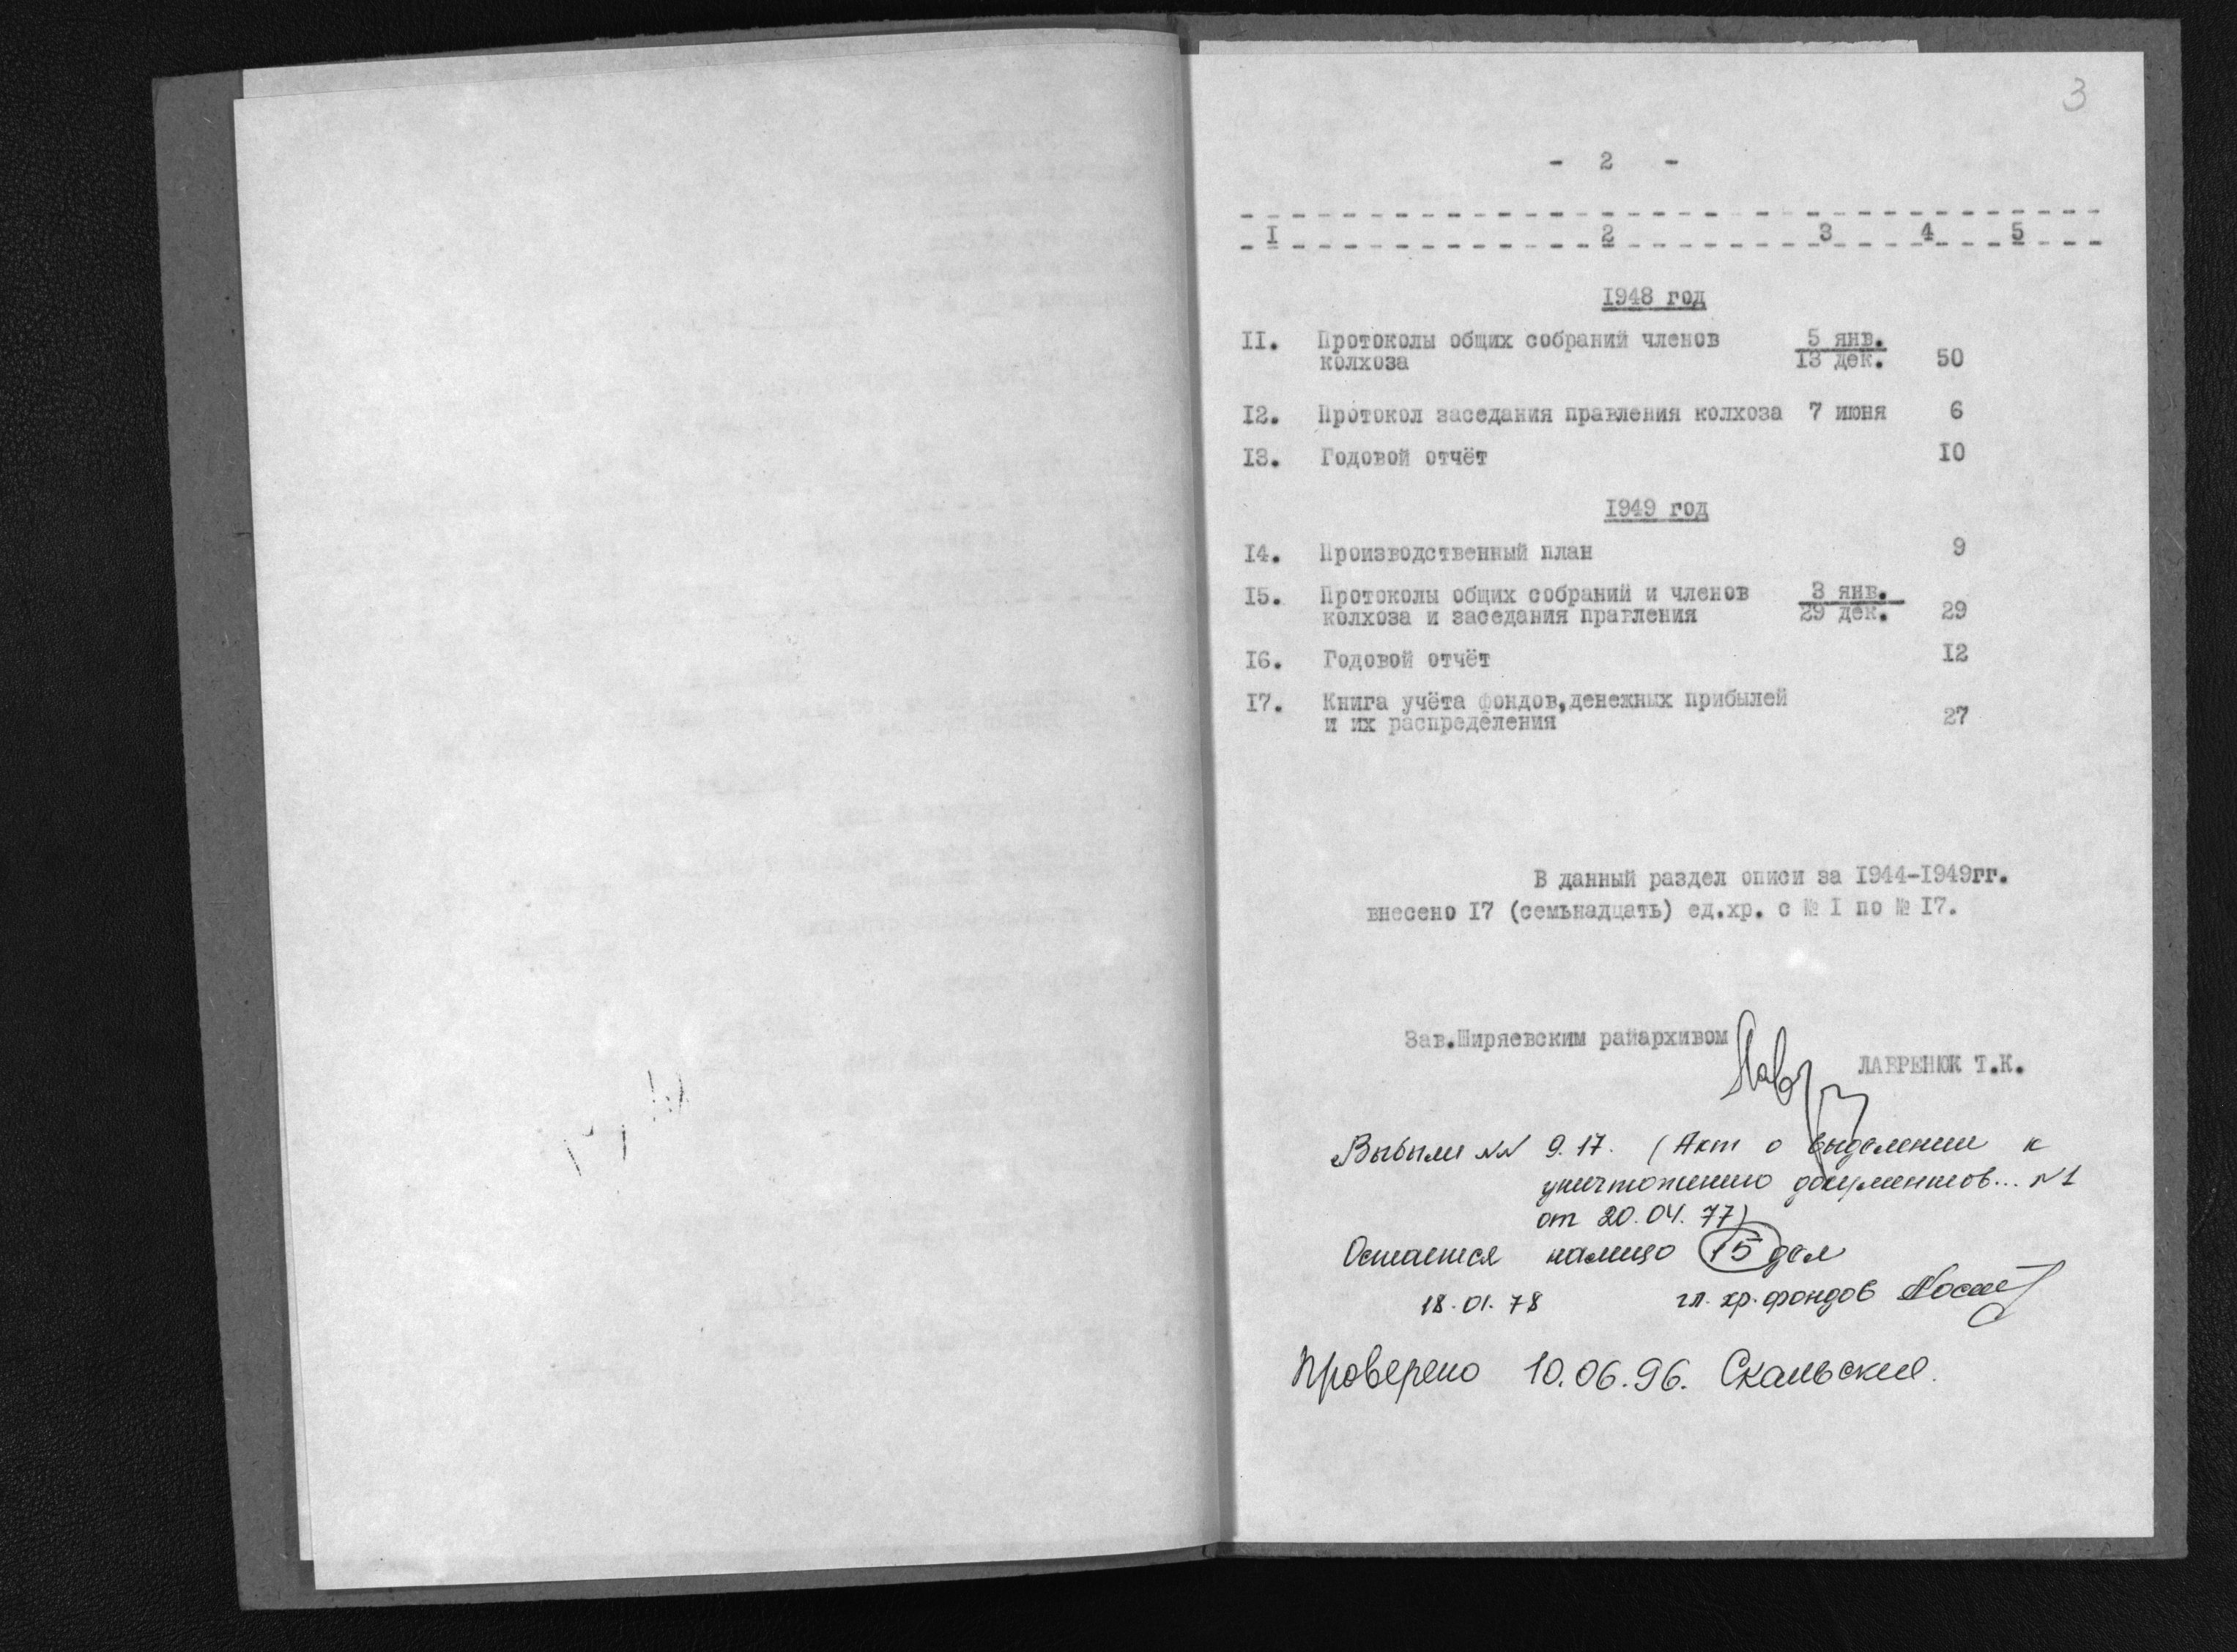 3
- 2 -
I 2 3 4 5
1948 год
II. Протоколы общих собраний членов 5 янв.
колхоза 13 дек. 50
I2. Протокол заседания правления колхоза 7 июня 6
I3. Годовой отчёт I0
1949 год
I4. Производственный план 9
I5. Протоколы общих собраний и членов 3 янв.
колхоза и заседания правления 29 дек. 29
I6. Годовой отчёт I2
I7. Книга учёта фондов,денежных прибылей
и их распределения 27
В данный раздел описи за I944-I949гг.
внесено I7 (семьнадцать) ед.хр. с № I по № I7.
Зав.Ширяевским райархивом
ЛАВРЕНЮК Т.К.
Выбыли NN 9.17. (Акт о выделении к
уничтожению документов... N1
от 20.04.77)
Остается налицо 15 дел
18.01.78 гл. хр. фондов
Проверено 10.06.96.